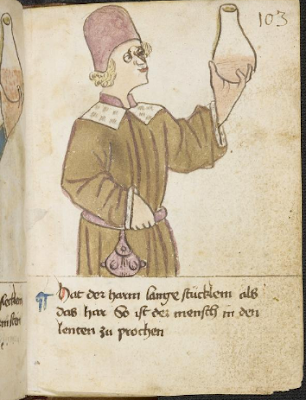 103
¶ Hat der harm lange stücklein als
das har So ist der mensch in den
lenten zu prochen